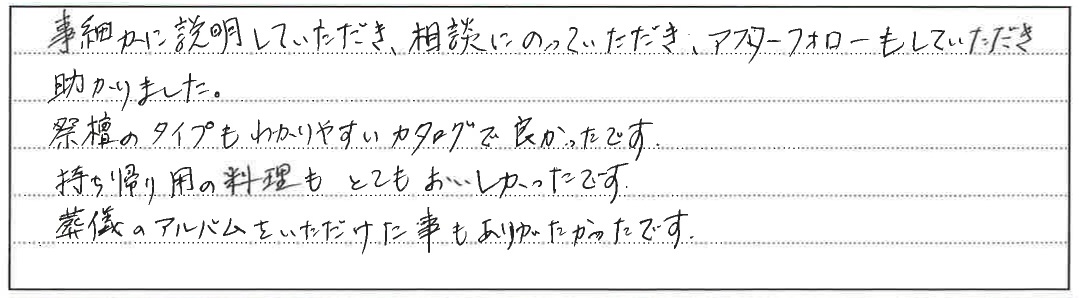 事細かに説明していただき、相談にのっていただき、アフターフォローもしていただき
助かりました。
祭壇のタイプもわかりやすいカタログで良かったです.
持ち帰り用の料理もとてもおいしかったです.
葬儀のアルバムをいただけた事もありがたかったです.